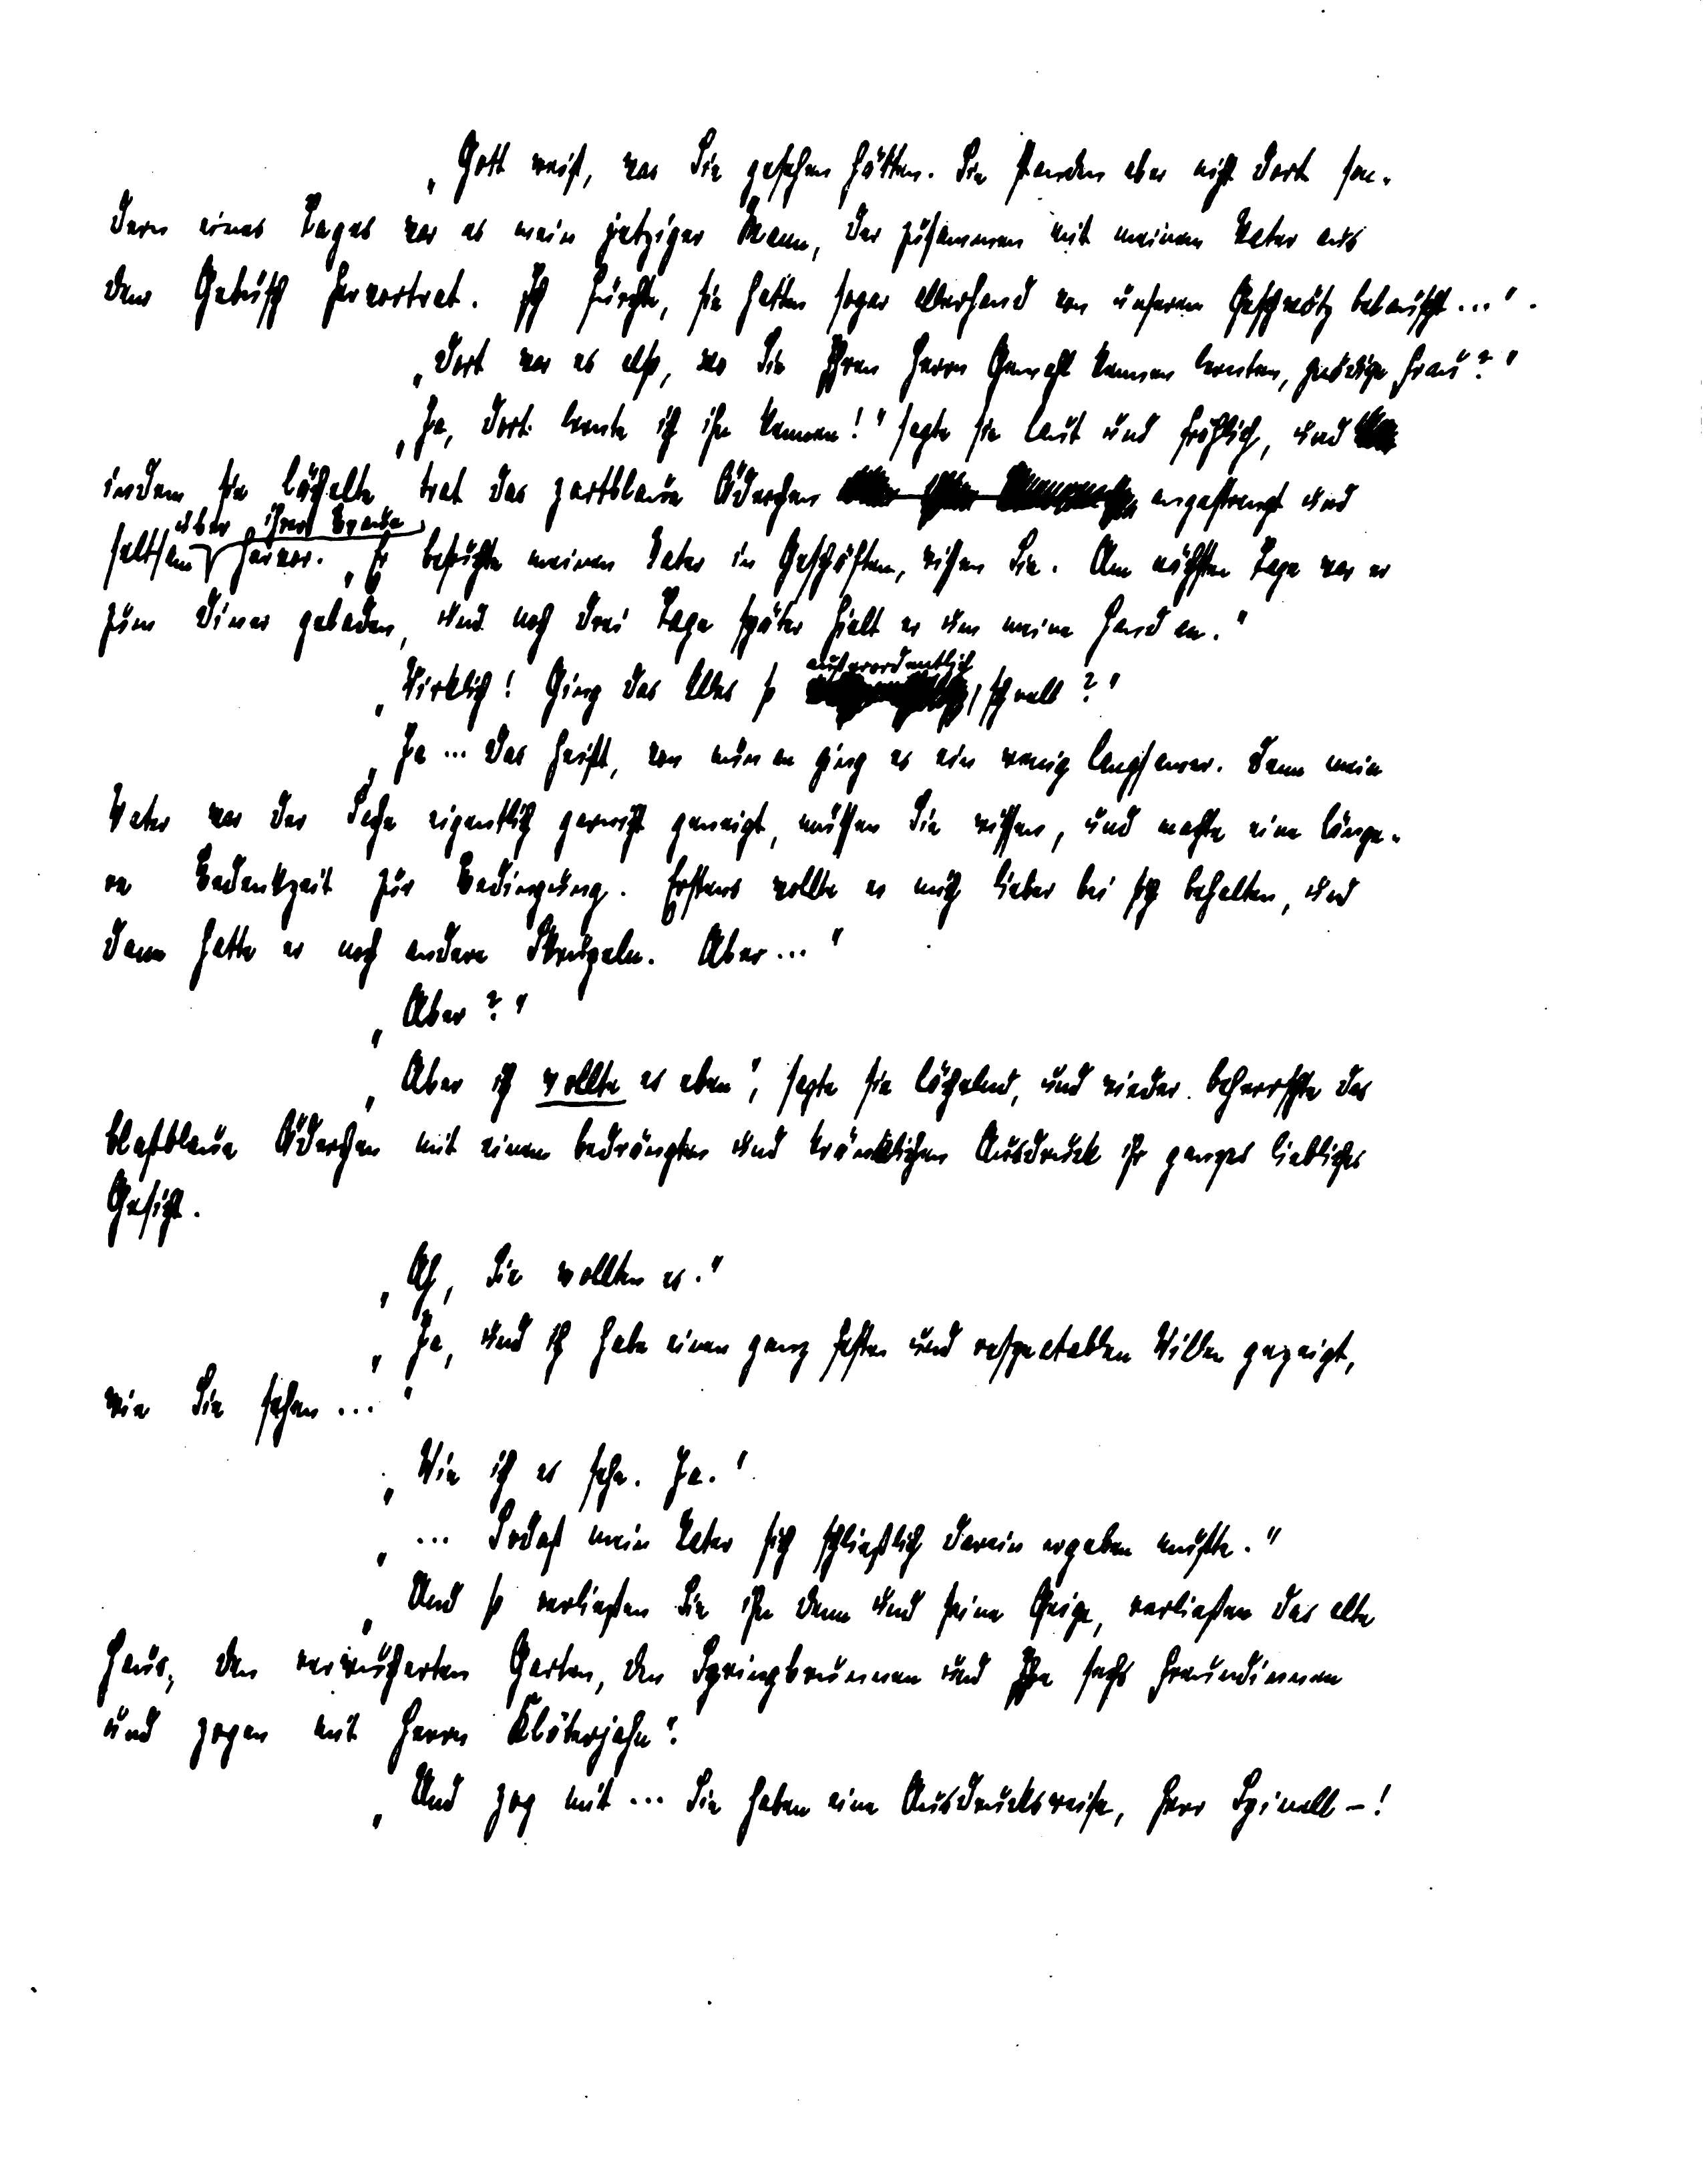 „Gott weiß, was Sie gesehen hätten. Sie standen aber nicht dort son-
dern eines Tages war es mein jetziger Mann, der zusammen mit meinem Vater aus
dem Gebüsch hervortrat. Ich fürchte, sie hatten sogar allerhand von unserem Geschwätz belauscht..."
„Dort war es also, wo Sie Ihren Herrn Gemahl kennen lernten, gnädige Frau?"
„Ja, dort lernte ich ihn kennen!" sagte sie laut und fröhlich, und
indem sie lächelte trat das zartblaue Äderchen angestrengt und
über ihrer Braue
seltsam hervor. „Er besuchte meinen Vater in Geschäften, wissen Sie. Am nächsten Tage war er
zum Diner geladen, und noch drei Tage später hielt er um meine Hand an."
außerordentlich
„Wirklich! Ging das Alles so schnell?"
„Ja ... das heißt, von nun an ging es ein wenig langsamer. Denn mein
Vater war der Sache eigentlich garnicht geneigt, müssen Sie wissen, und machte eine länge-
re Bedenkzeit zur Bedingung. Erstens wollte er mich lieber bei sich behalten, und
dann hatte er noch andere Skrupeln. Aber ..."
„Aber?"
„Aber ich wollte es eben", sagte sie lächelnd, und wieder beherrschte das
blaßblaue Äderchen mit einem bedrängten und kränklichen Ausdruck ihr ganzes liebliches
Gesicht.
„Ah, Sie wollten es."
„Ja, und ich habe einen ganz festen und respectablen Willen gezeigt,
wie Sie sehen ..."
„Wie ich es sehe. Ja."
„... Sodaß mein Vater sich schließlich darein ergeben mußte."
„Und so verließen Sie ihn denn und seine Geige, verließen das alte
Haus, den verwucherten Garten, den Springbrunnen und Ihre sechs Freundinnen
und zogen mit Herrn Klöterjahn".
„Und zog mit ... Sie haben eine Ausdrucksweise, Herr Spinell –!